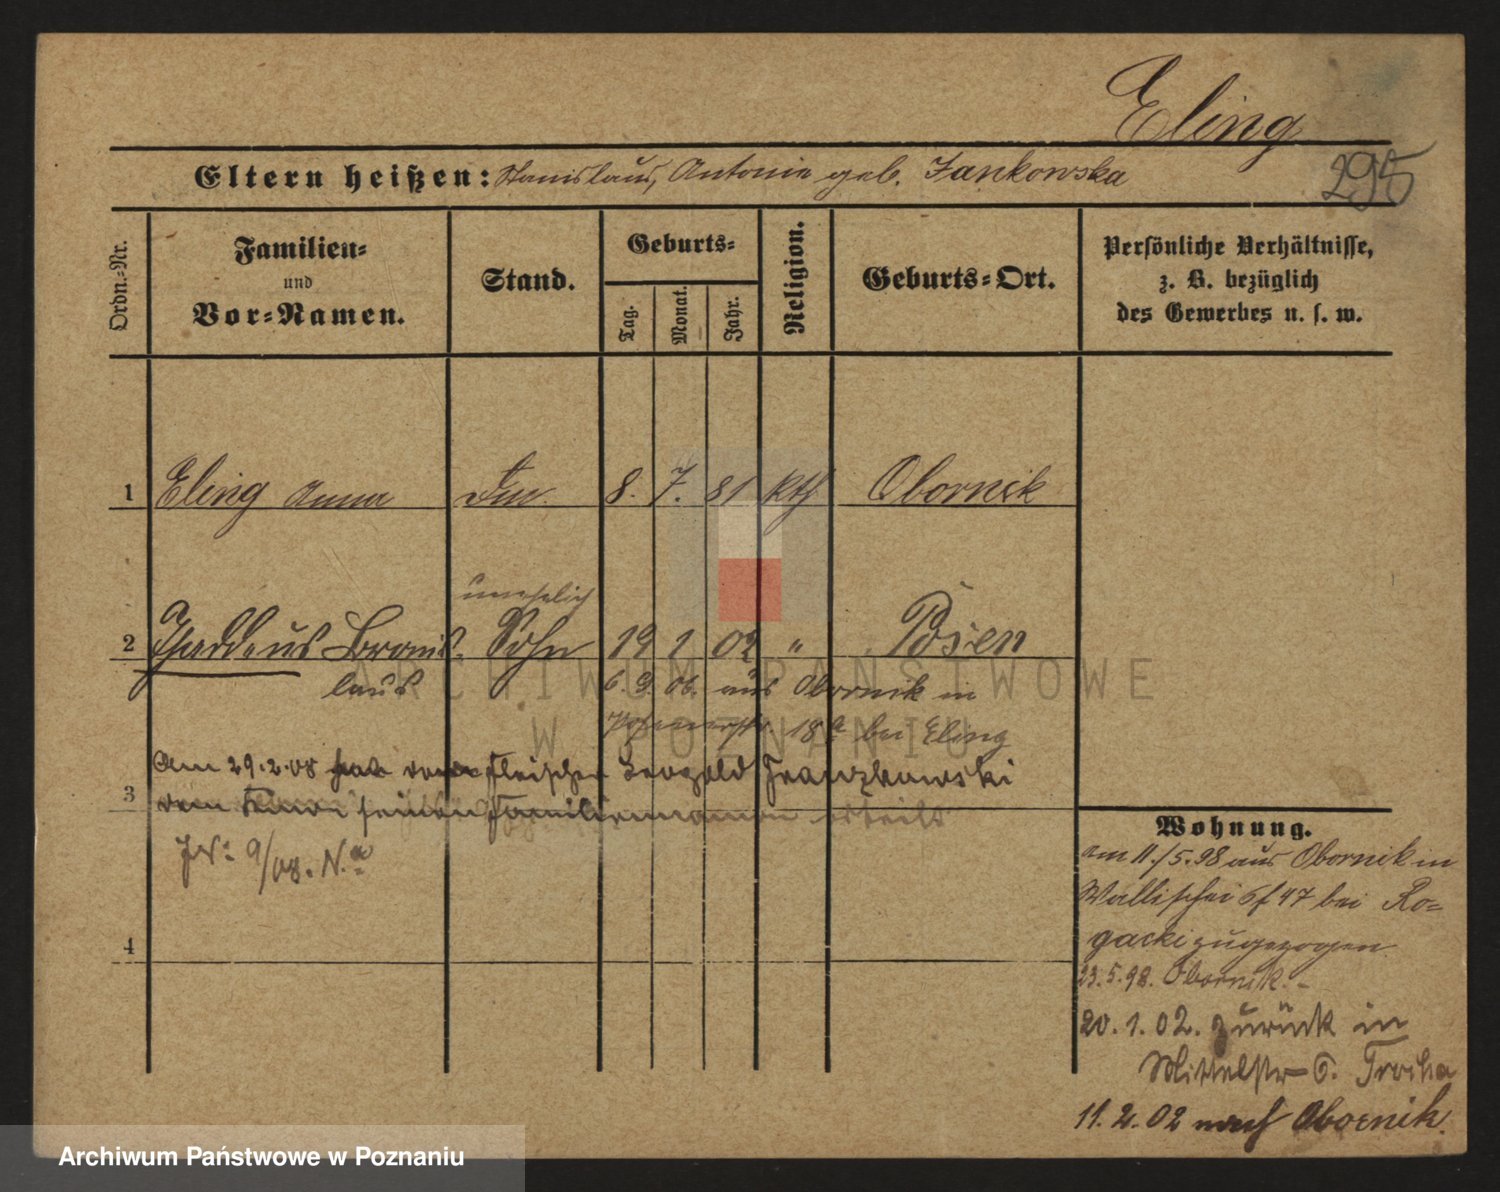 Eling
295
Eltern heißen: Stanislaus, Antonie geb. Jankowska
Ordn.-Nr.
Familien-
und
Vor-Namen.
Stand.
Geburts-
Tag.
Monat.
Jahr.
Religion.
Geburts-Ort.
Persönliche Verhältnisse,
z. B. bezüglich
des Gewerbes u. s. w.
1 Eling Anna 8. 7. 81 kth Obornik
unehelich
2 Thaddeus Bronis- Sohn 19 1 02 " Posen
laus 6. 9. 06. aus Obornik in
18a bei Eling
Am 29.2.08 hat Fleischer Leopold Franzkowski
3 seinen Familiennamen erteilt
9/08. N.
4
Wohnung.
am 11./5.98 aus Obornik in
Wallischei 47 bei Ro-
gacki zugezogen
23.5.98. Obornik. -
20.1.02. zurück in
Mittelstr 6. Trocha
11.2.02 nach Obornik.
ARCHIWUM PAŃSTWOWE
W POZNANIU
Archiwum Państwowe w Poznaniu